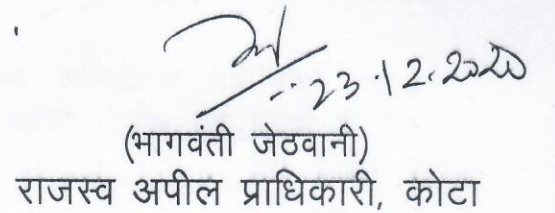 23.12.2020
(भागवंती जेठवानी)
राजस्व अपील प्राधिकारी, कोटा